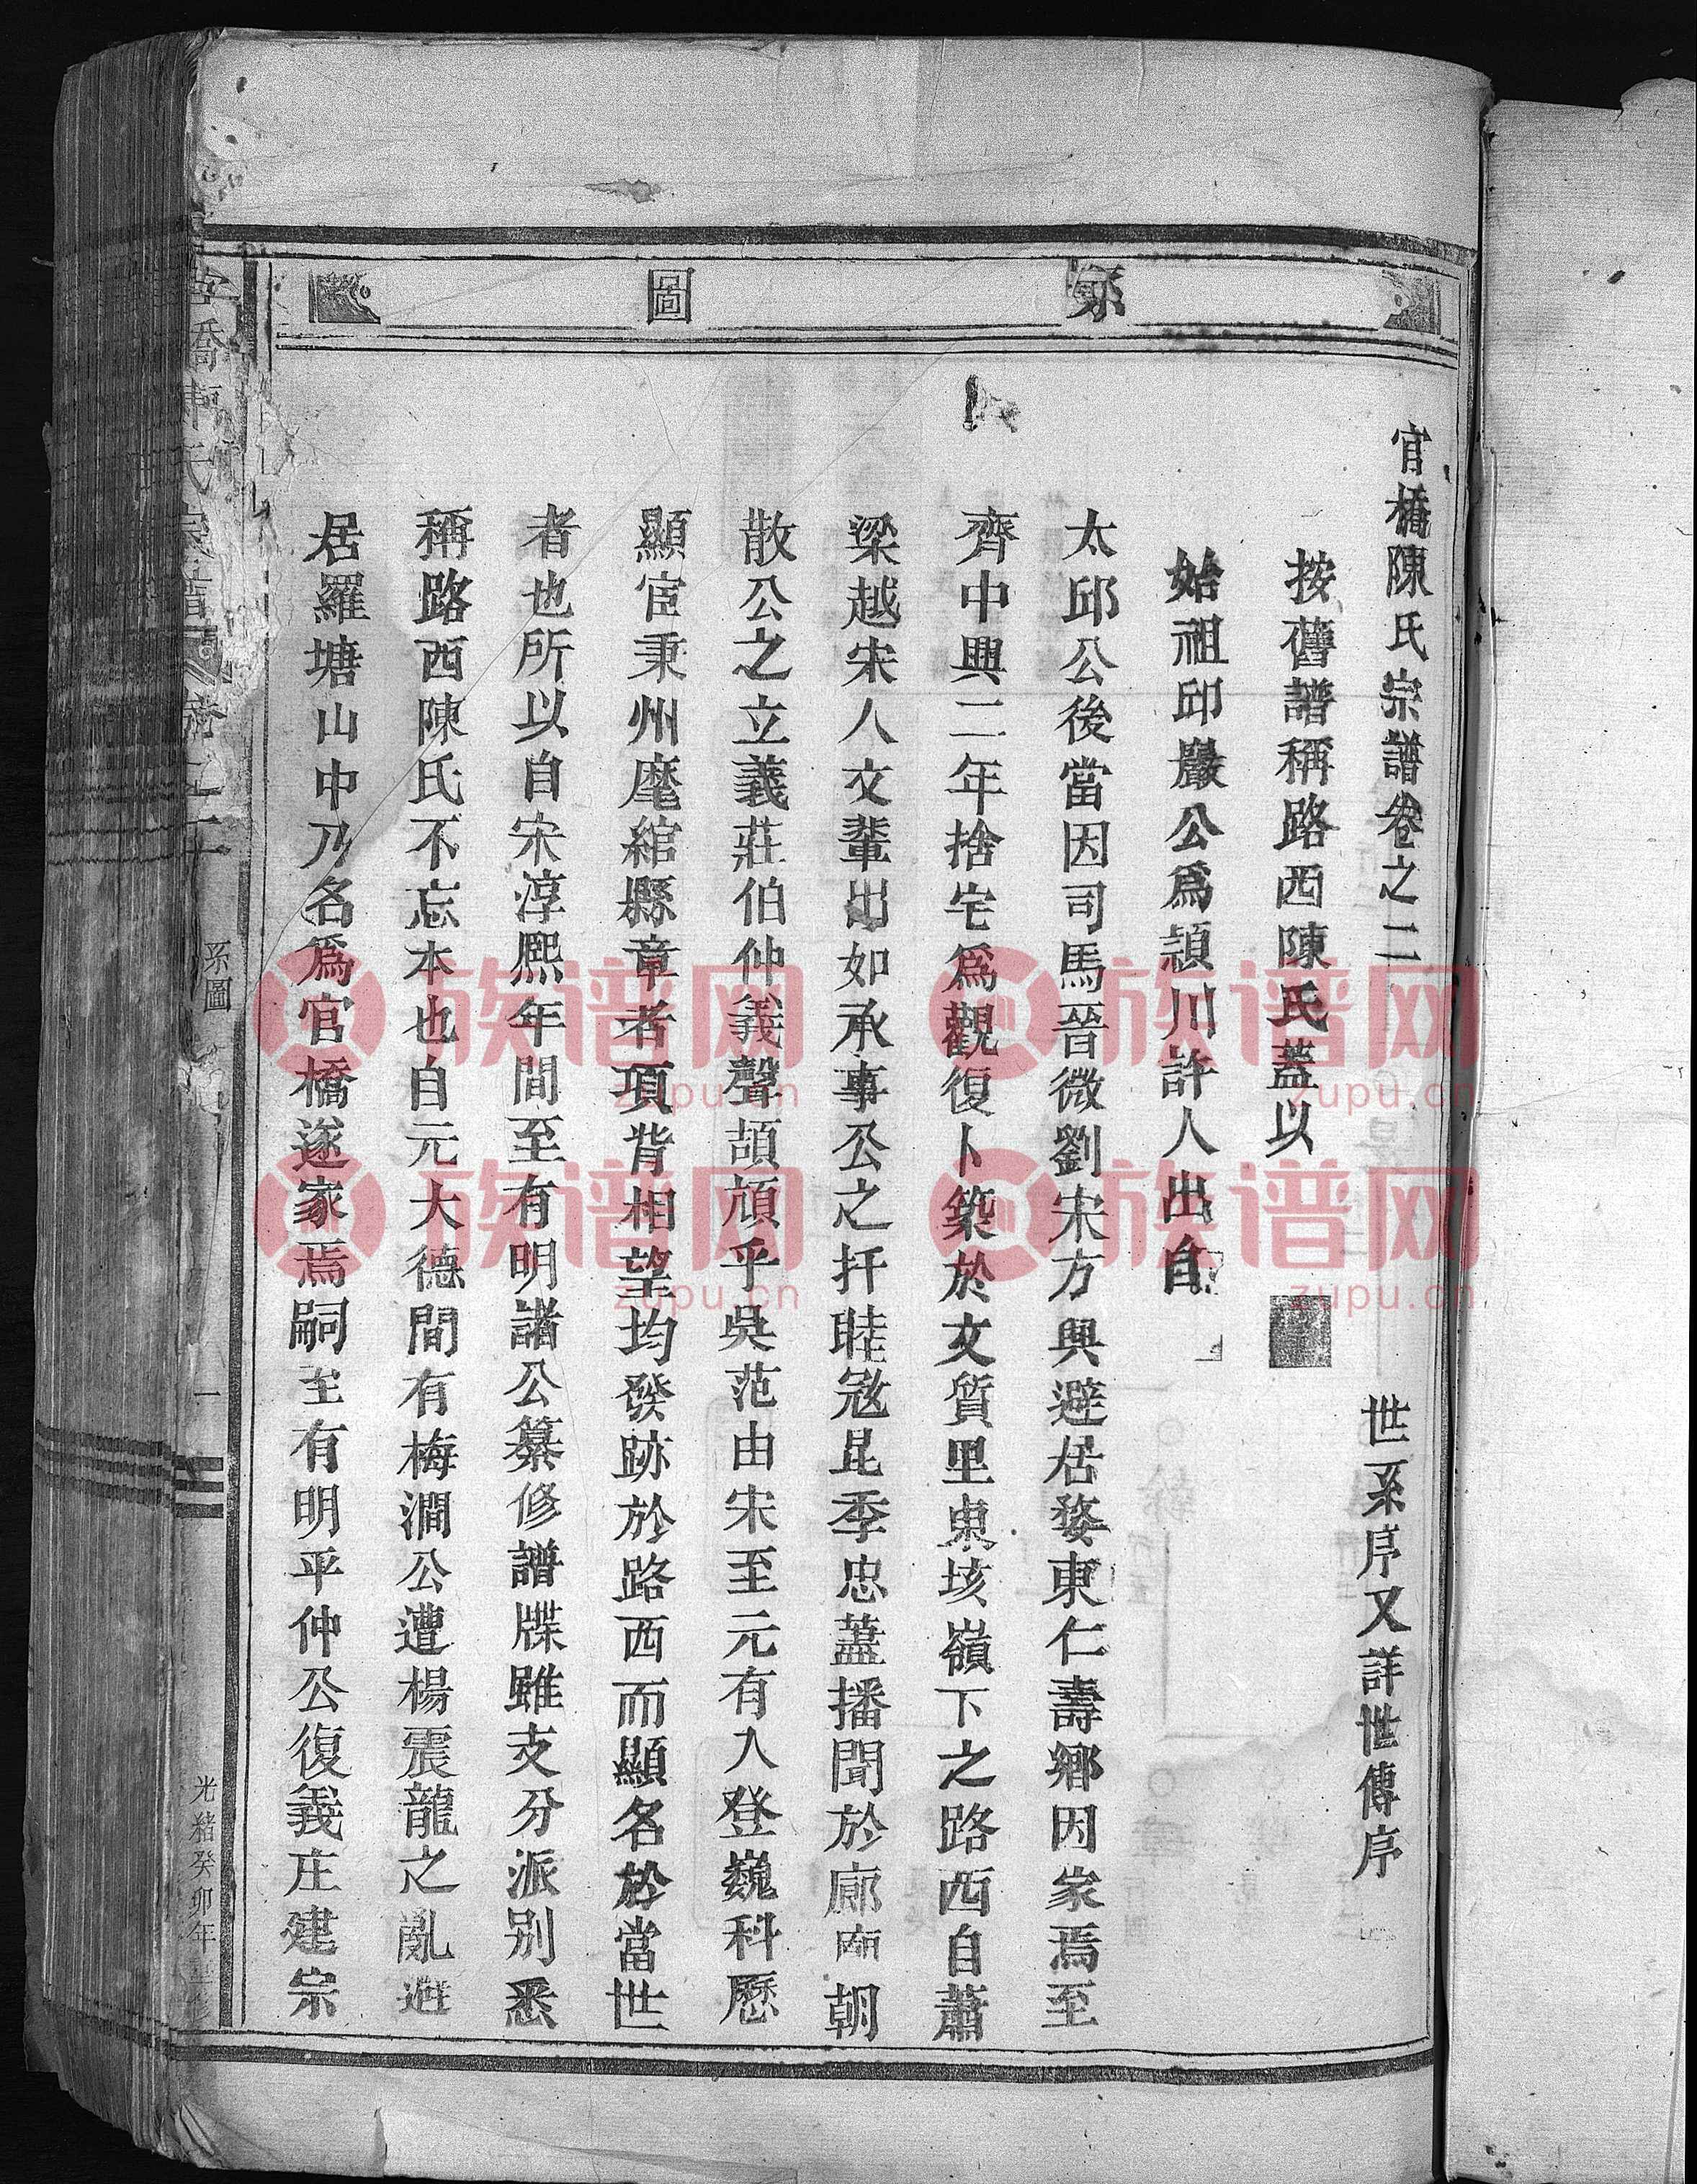 系圖
官橋陳氏宗譜卷之二 世系序又詳世傳序
按舊譜稱路西陳氏蓋以
始祖邱巖公爲頴川許人出自
太邱公後當因司馬晉微劉宋方興避居婺東仁壽鄉因家焉至
齊中興二年捨宅爲觀復卜築於文質里東垓嶺下之路西自蕭
梁越宋人文輩出如承事公之扞睦冦昆季忠藎播聞於廊廟朝
散公之立義莊伯仲義聲頡頏乎吳范由宋至元有入登巍科歷
顯宦秉州麾綰縣章者項背相望均發跡於路西而顯名於當世
者也所以自宋淳熙年間至有明諸公纂修譜牒雖支分派别悉
稱路西陳氏不忘本也自元大德間有梅澗公遭楊震龍之亂避
居羅塘山中乃名爲官橋遂家焉嗣至有明平仲公復義庄建宗
系圖
一
光緒癸卯年重修
族谱网
zupu.cn
族谱网
zupu.cn
族谱网
zupu.cn
族谱网
zupu.cn